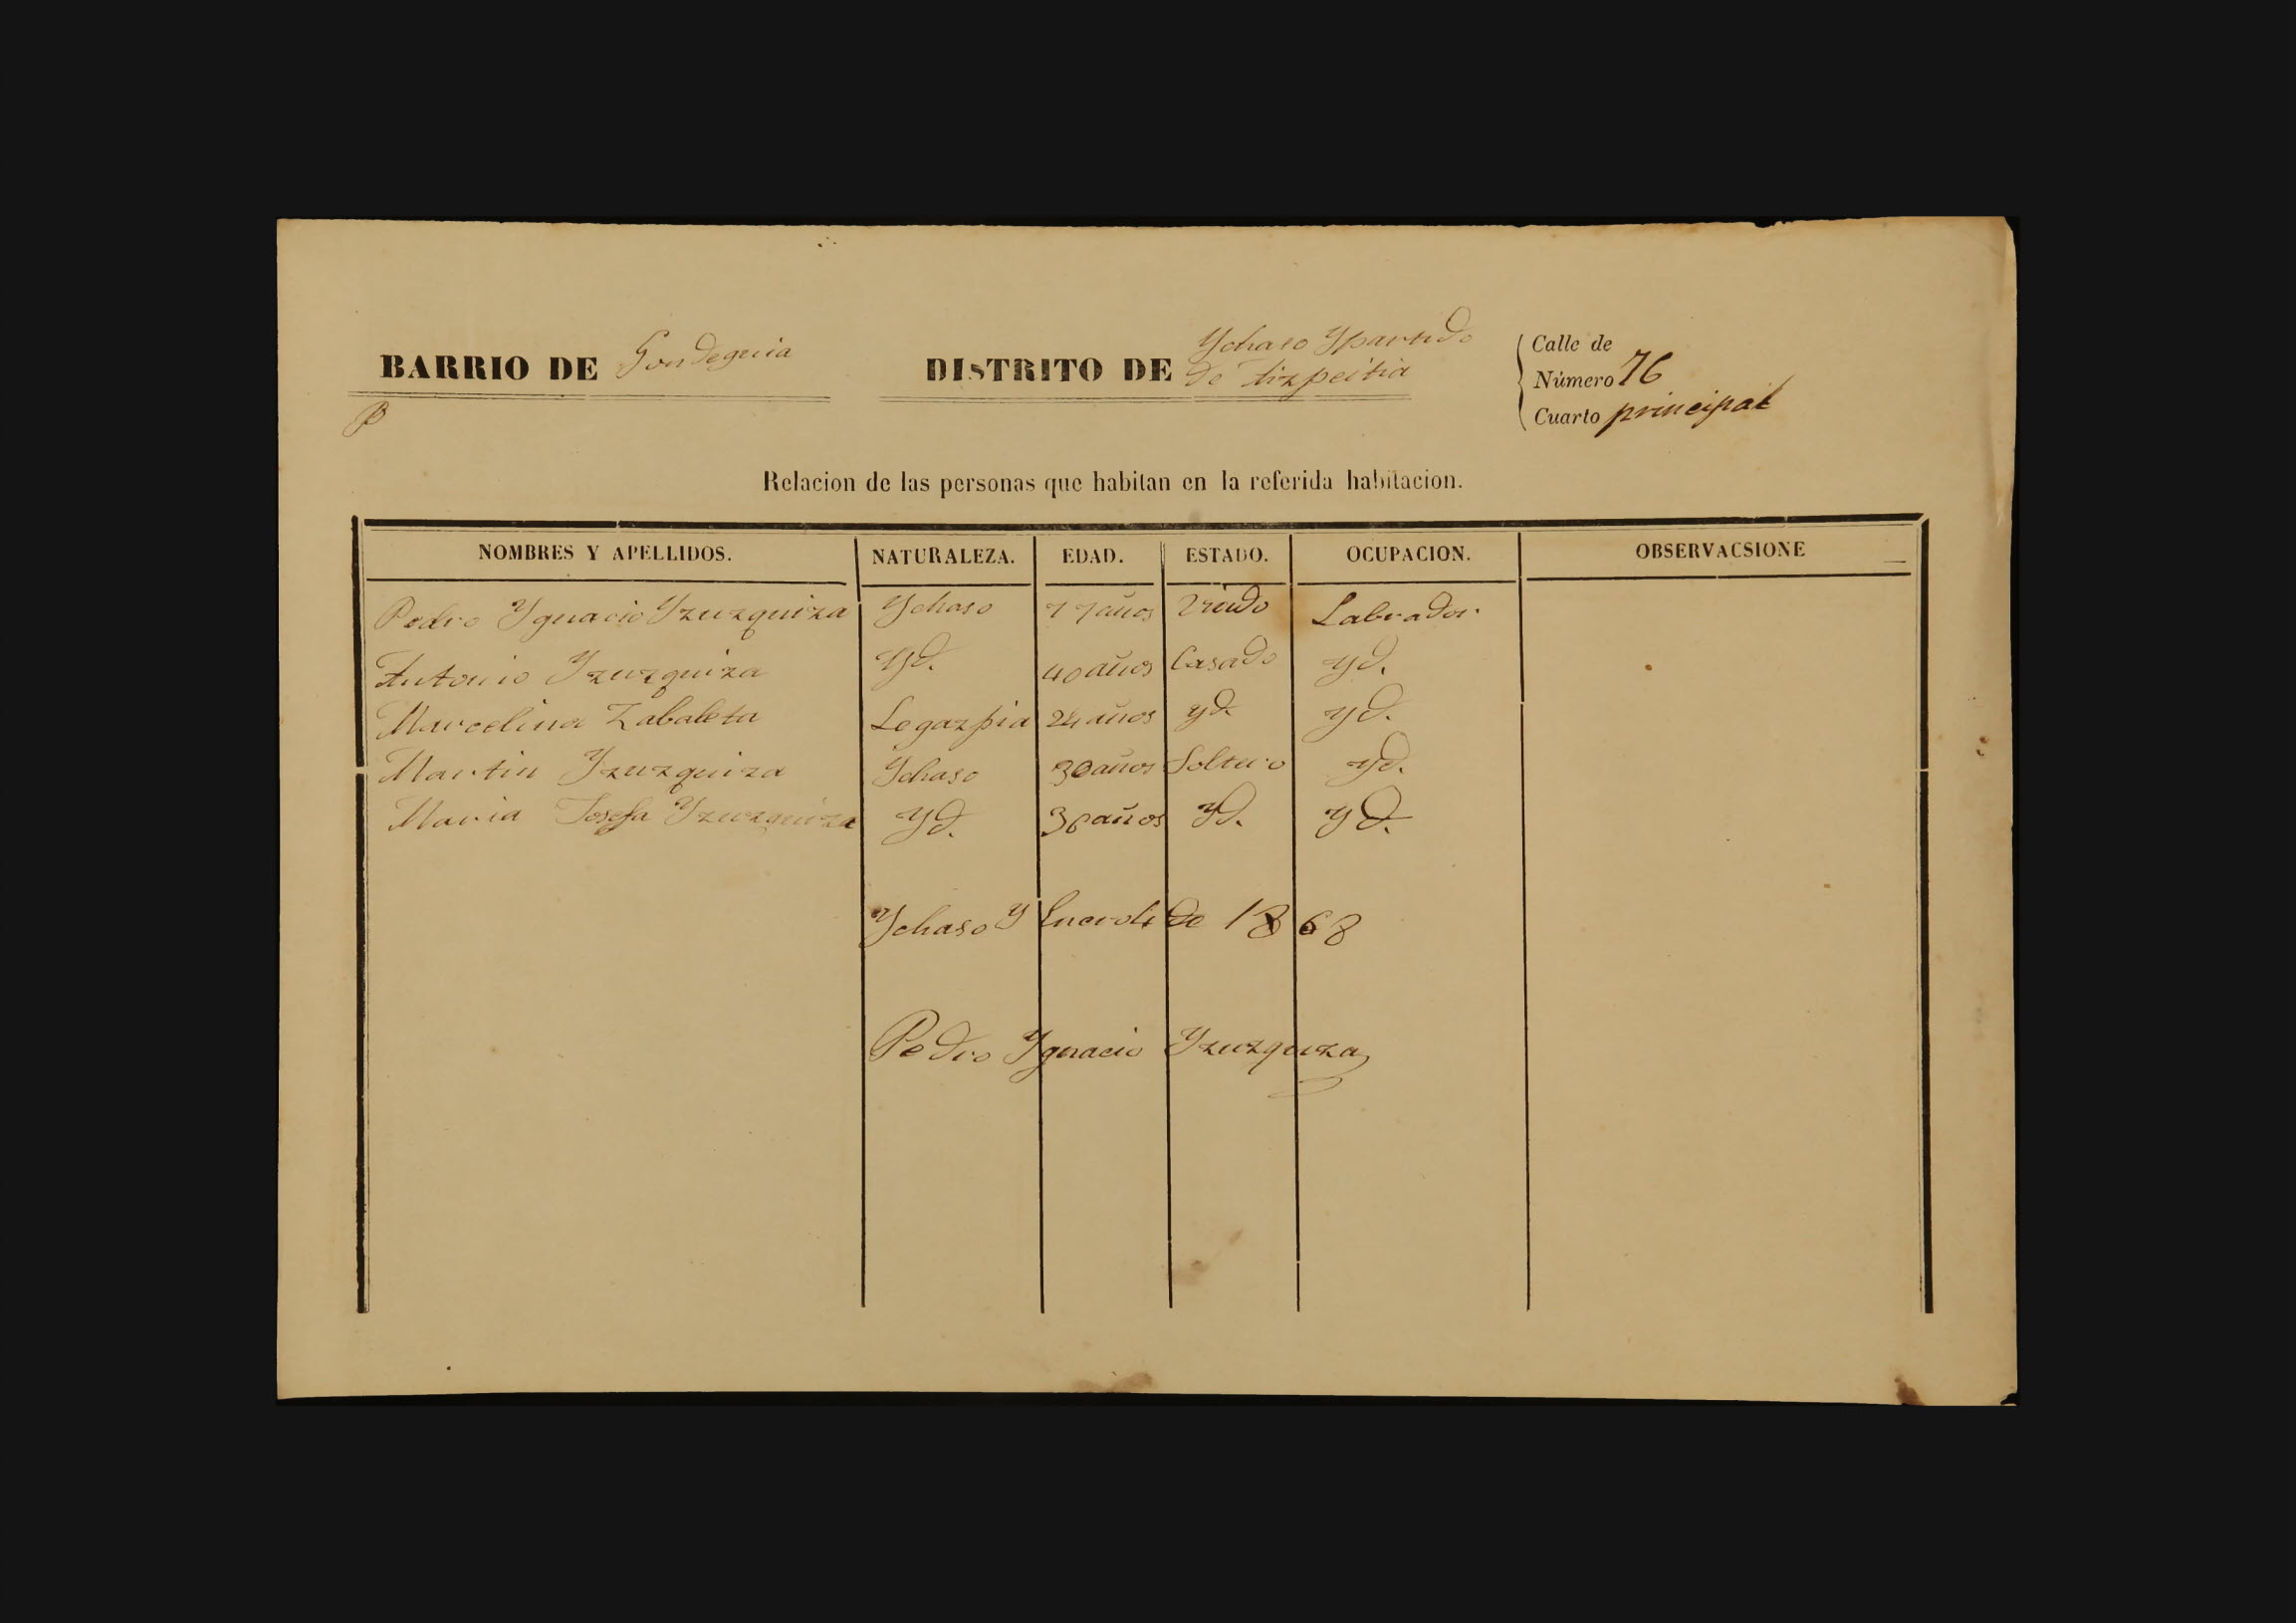 BARRIO DE Gondeguia
DISTRITO DE Ychaso Ypartido
de Aizpeitia
Calle de
Número 76
Cuarto principal
P
Relacion de las personas que habitan en la referida habitacion.
NOMBRES Y APELLIDOS. NATURALEZA. EDAD. ESTADO. OCUPACION. OBSERVACSIONE
Pedro Ygnacio Yzuzquiza Ychaso 77 años Viudo Labrador
Antonio Yzuzquiza Yd. 40 años Casado yd.
Marcelina Zabaleta Legazpia 24 años yd. yd.
Martin Yzuzquiza Ychaso 30 años Soltero yd.
Maria Josefa Yzuzquiza yd. 36 años yd. yd.
Ychaso Y de 1868
Pedro Ygnacio Yzuzquiza